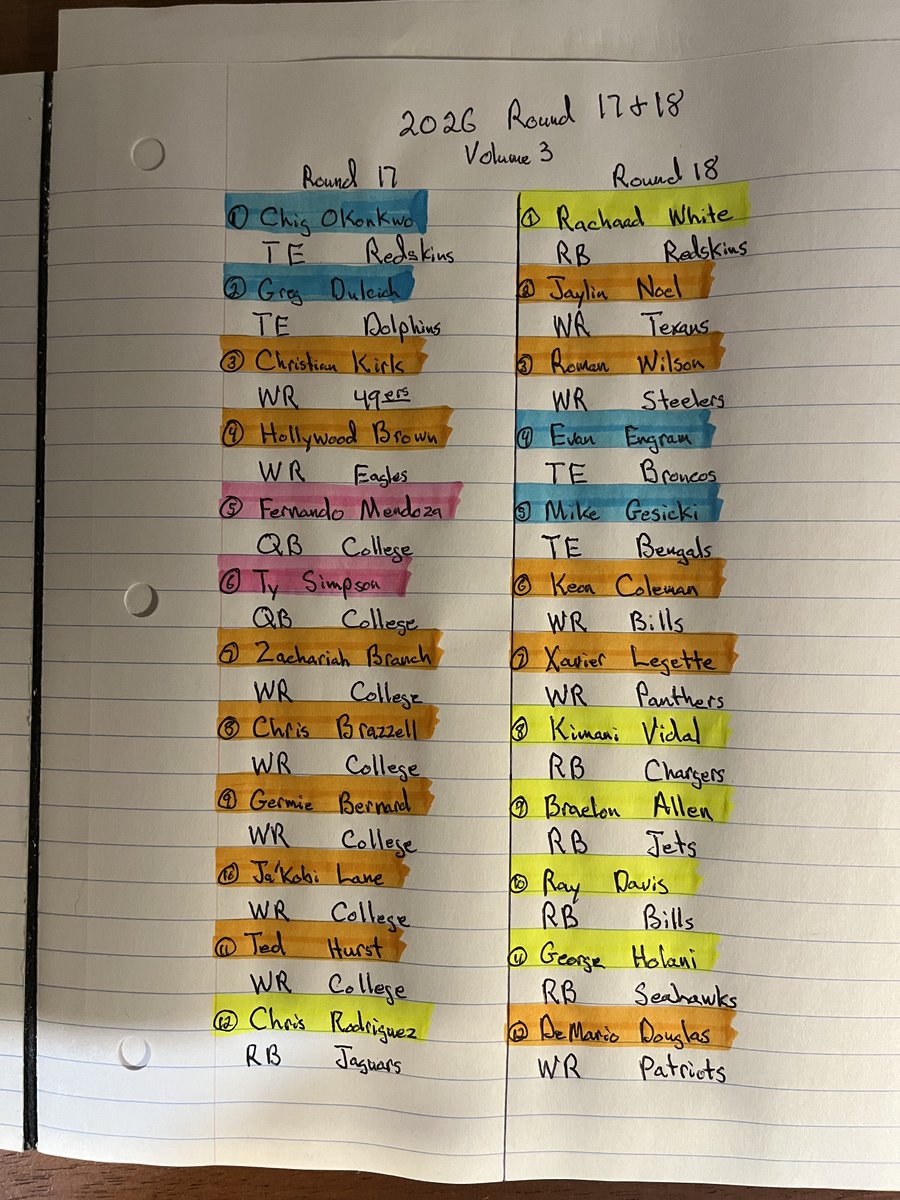 2026 Round 17 & 18
Volume 3
Round 17
① Chig Okonkwo
TE Redskins
② Greg Dulcich
TE Dolphins
③ Christian Kirk
WR 49ers
④ Hollywood Brown
WR Eagles
⑤ Fernando Mendoza
QB College
⑥ Ty Simpson
QB College
⑦ Zachariah Branch
WR College
⑧ Chris Brazzell
WR College
⑨ Germie Bernard
WR College
⑩ Ja'Kobi Lane
WR College
⑪ Ted Hurst
WR College
⑫ Chris Rodriguez
RB Jaguars
Round 18
① Rachaad White
RB Redskins
② Jaylin Noel
WR Texans
③ Roman Wilson
WR Steelers
④ Evan Engram
TE Broncos
⑤ Mike Gesicki
TE Bengals
⑥ Keon Coleman
WR Bills
⑦ Xavier Legette
WR Panthers
⑧ Kimani Vidal
RB Chargers
⑨ Braelon Allen
RB Jets
⑩ Ray Davis
RB Bills
⑪ George Holani
RB Seahawks
⑫ DeMario Douglas
WR Patriots